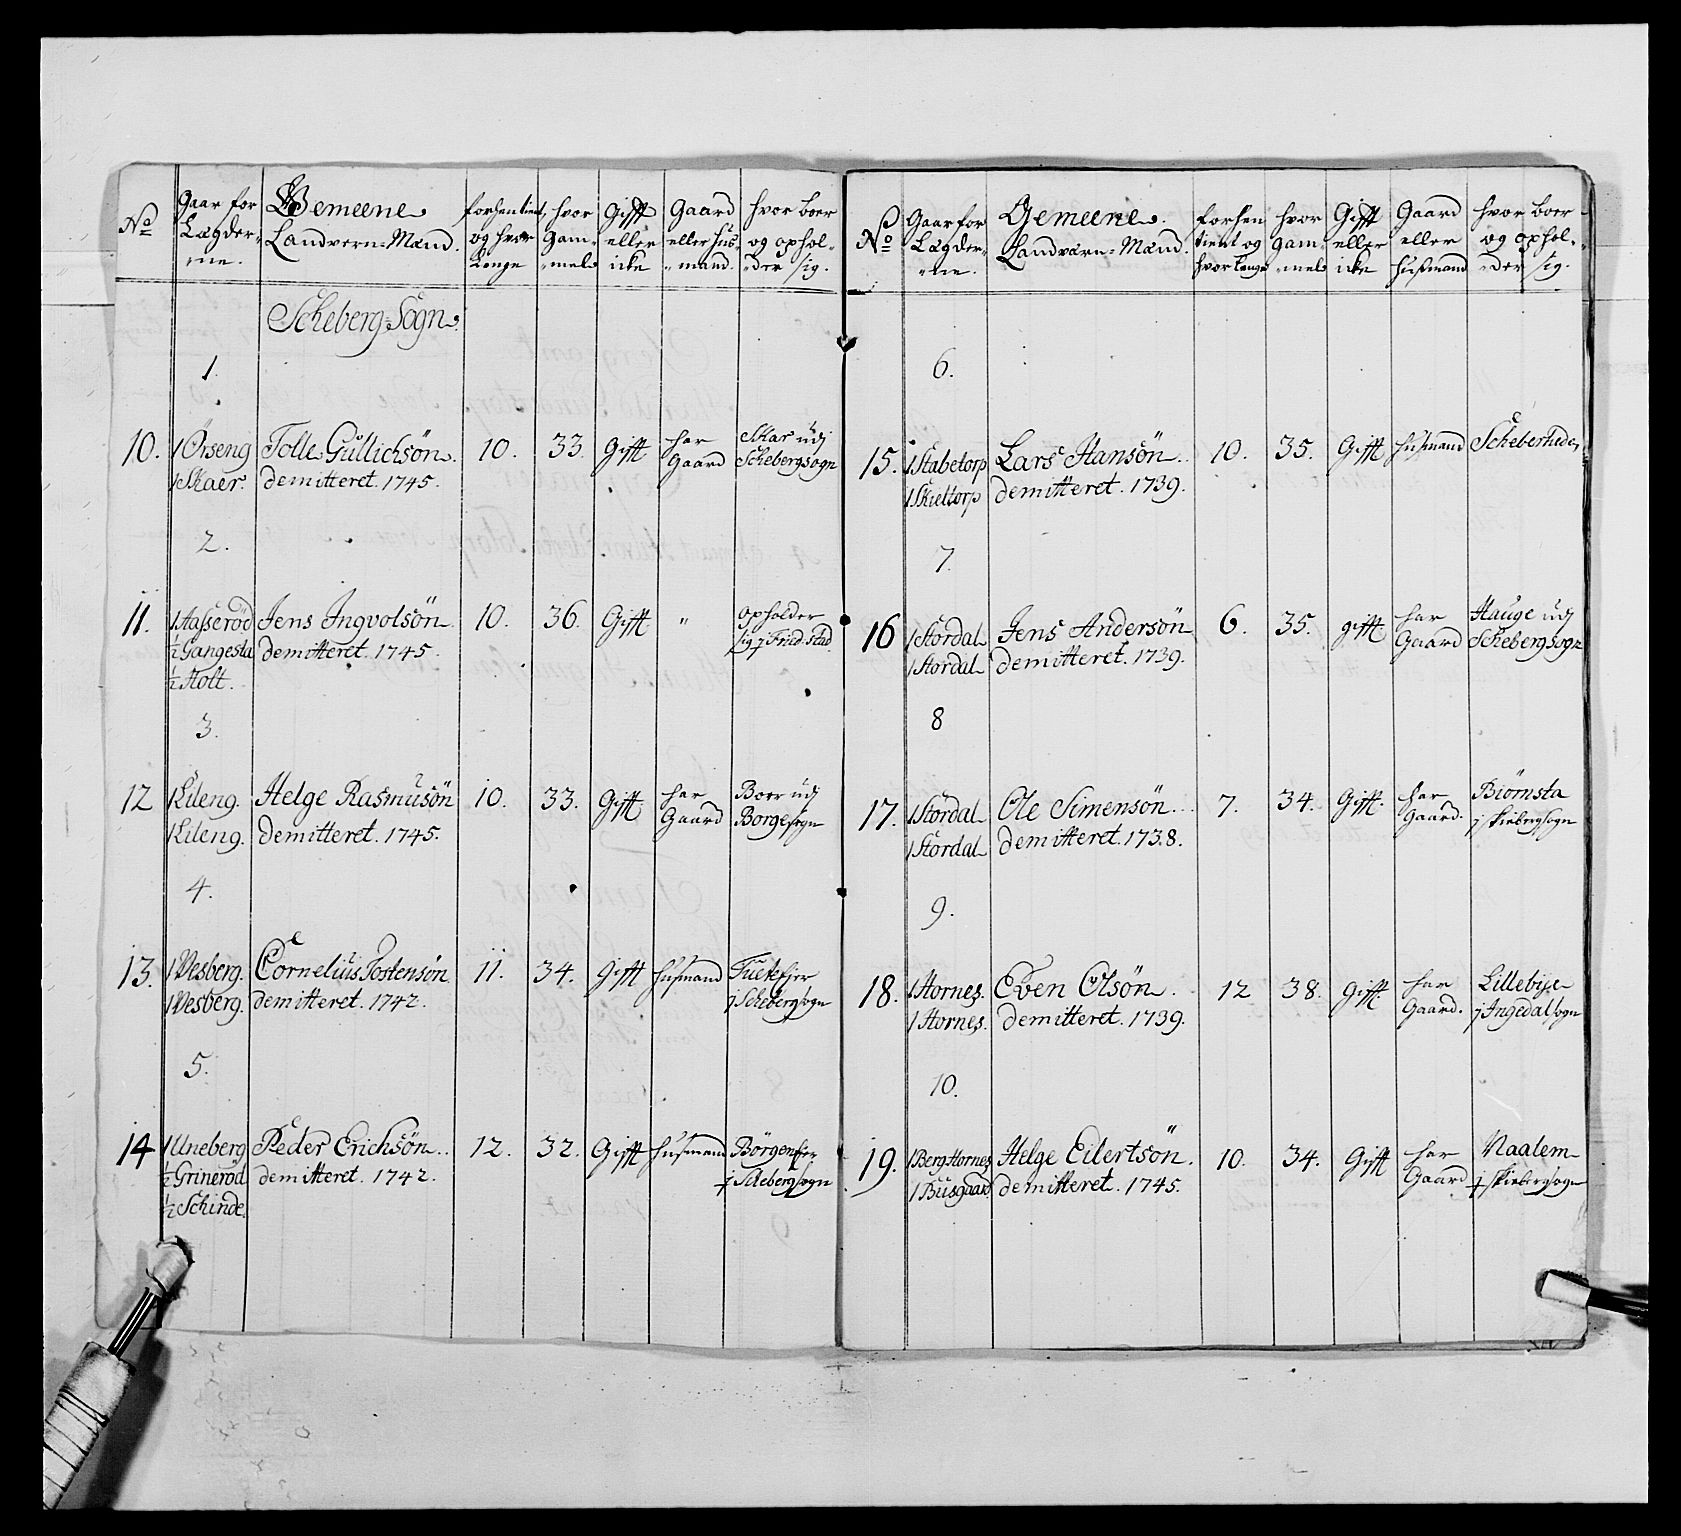 No
Gaar for
Lægder-
ne.
Gemeene
Landvern-Mænd.
forhen tient,
og hvor
Lenge
hvor
Gam-
mel
Gifft
eller
icke
Gaard
eller hus
mand.
hvor boer
og ophol-
der sig.
Scheberg-Sogn
1.
10.
1 Örseng
1 Skaer.
Tolle Gullichsön.
demitteret. 1745.
10.
33
Gift
har
Gaard
Skar udj
Schebergsogn
2.
11.
1 Hasseröd
½ Gangesta
½ Holt.
Jens Ingvolsön.
demitteret. 1745.
10.
36.
Gift
"
opholder
sig j Frid.stad
3.
12
1 Eileng.
1 Eileng.
Helge Rasmusön
demitteret. 1745.
10.
33.
Gift
har
Gaard
Boer udj
Borgesogn
4.
13.
1 Vesberg.
1 Vesberg.
Cornelius Tostensön
demitteret. 1742.
11.
34.
Gift
husmand
j Scheberg sogn
5.
14
1 Uneberg
½ Grineröd
½ Schinde.
Peder Erichsön.
demitteret. 1742.
12.
32.
Gift
husmand
j Scheberg sogn
No
Gaar for
Lægder-
ne.
Gemeene.
Landværn-Mænd.
forhen
tient og
hvor lenge
hvor
gam-
mel
Gifft
eller
icke
Gaard
eller
husmand
hvor boer
og ophol-
der sig.
6.
15.
1 Stabetorp
1 Skieltorp
Lars Hansön.
demitteret. 1739.
10.
35.
Gift
husmand
7.
16
1 Stordal
1 Stordal
Jens Andersön
demitteret. 1739.
6.
35.
gift
har
Gaard
Hauge udj
Schebergsogn
8
17.
1 Stordal
1 Stordal
Ole Simensön.
demitteret. 1738.
7.
34.
Gift.
har
Gaard.
Biörnsta
j skiebergsogn
9.
18.
1 Hornes.
1 Hornes.
Even Olsön.
demitteret. 1739.
12
38.
Gift.
har
Gaard.
Lillebye
j Ingedal sogn
10.
19.
1 Berg Hornes
1 Busgaard
Helge Eilertsön.
demitteret. 1745.
10.
34.
Gift
har
Gaard
Naalem
j skiebergsogn